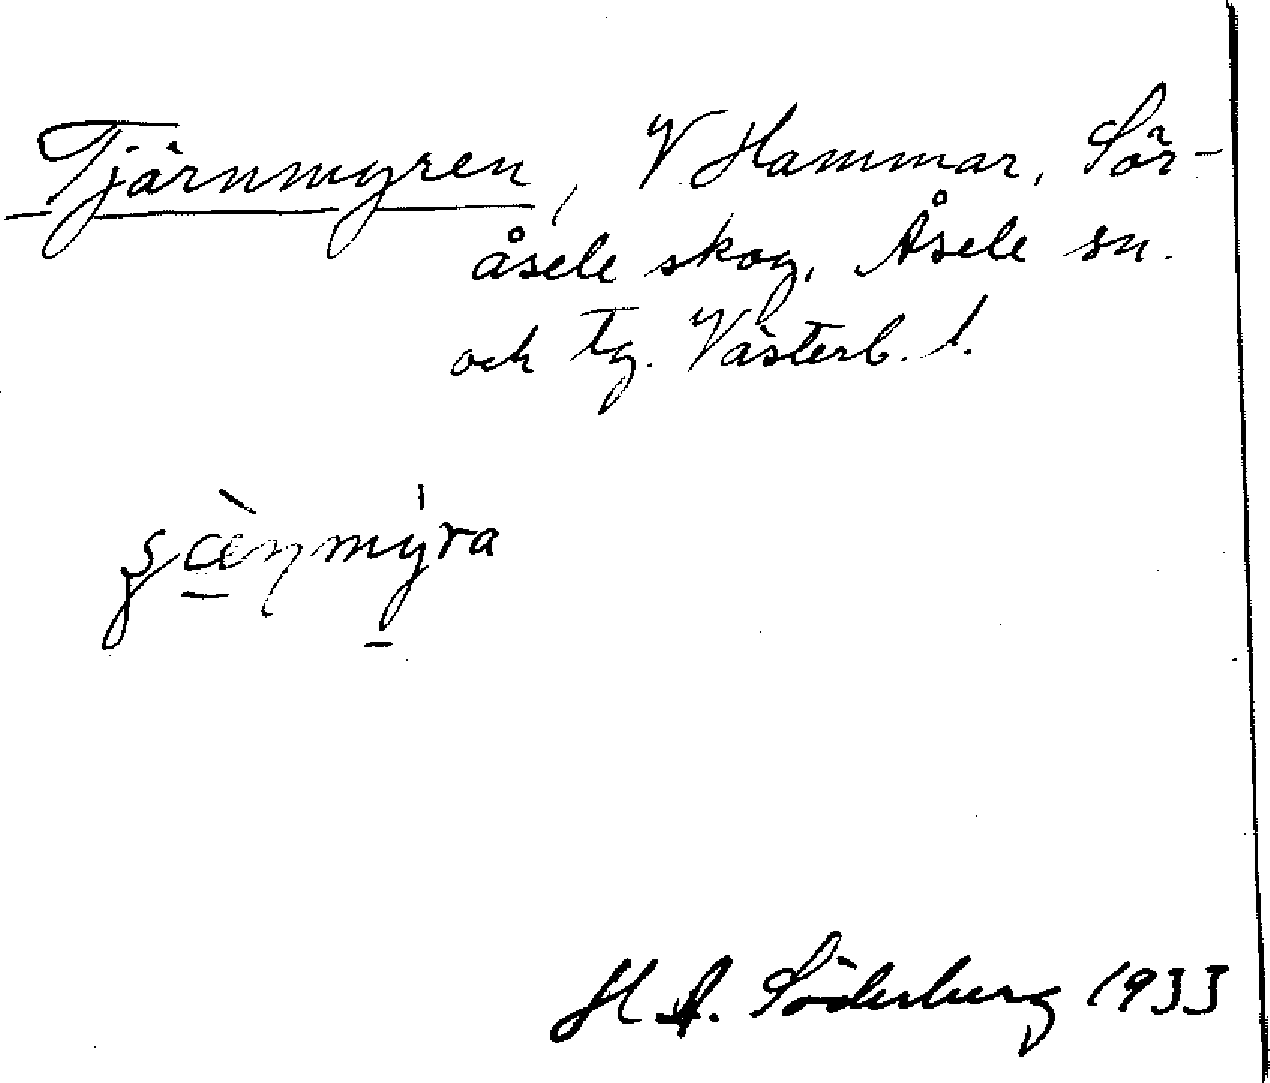 Tjärnmyren, V Hammar, Sör-
åsele skog, Åsele sn.
och tg. Västerb. l.
H. A. Söderberg 1933